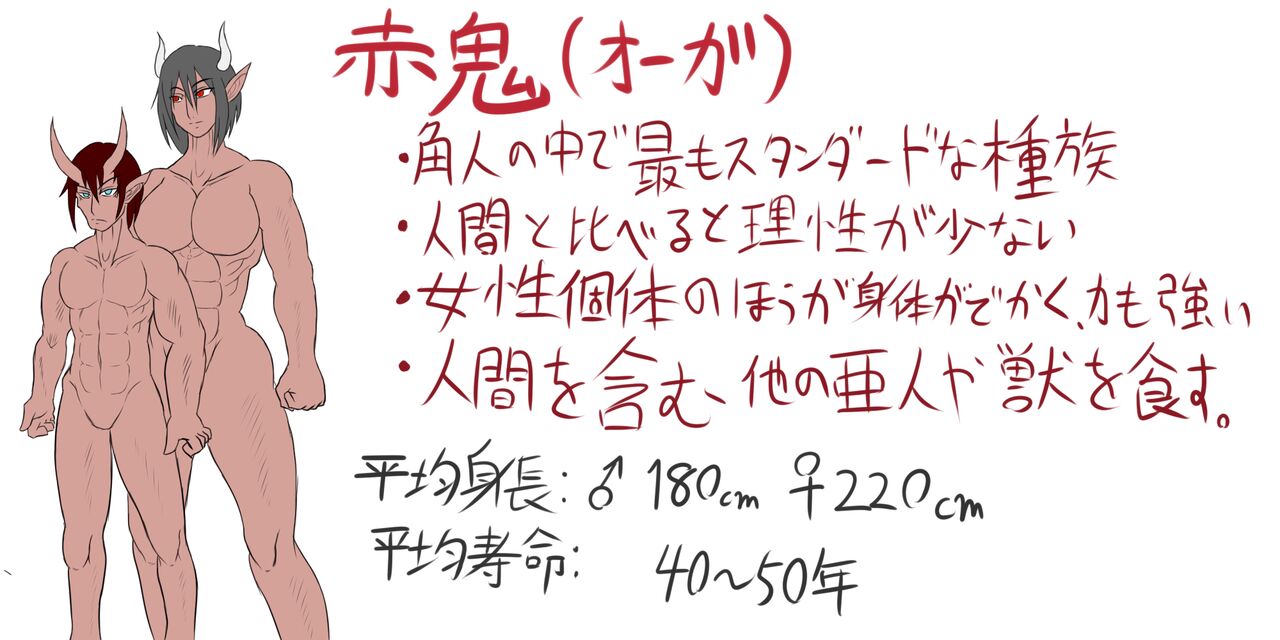 赤鬼(オーガ)
・角人の中で最もスタンダードな種族
・人間と比べると理性が少ない
・女性個体のほうが身体がでかく、力も強い
・人間を含む、他の亜人や獣を食す。
平均身長:♂180cm ♀220cm
平均寿命: 40〜50年